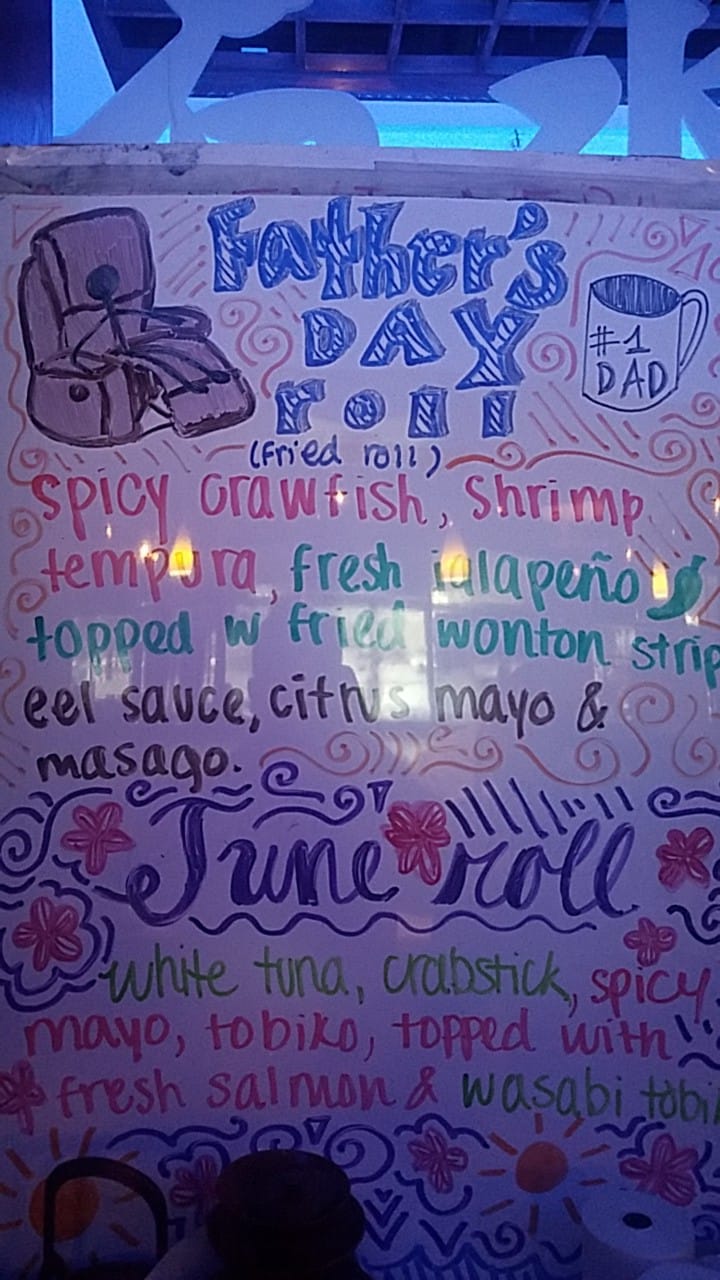 Father's
DAY
roll
#1
DAD
(fried roll)
spicy crawfish, shrimp
tempura, fresh jalapeño
topped w fried wonton strip
eel sauce, citrus mayo &
masago.
June roll
white tuna, crabstick, spicy
mayo, tobiko, topped with
fresh salmon & wasabi tobik